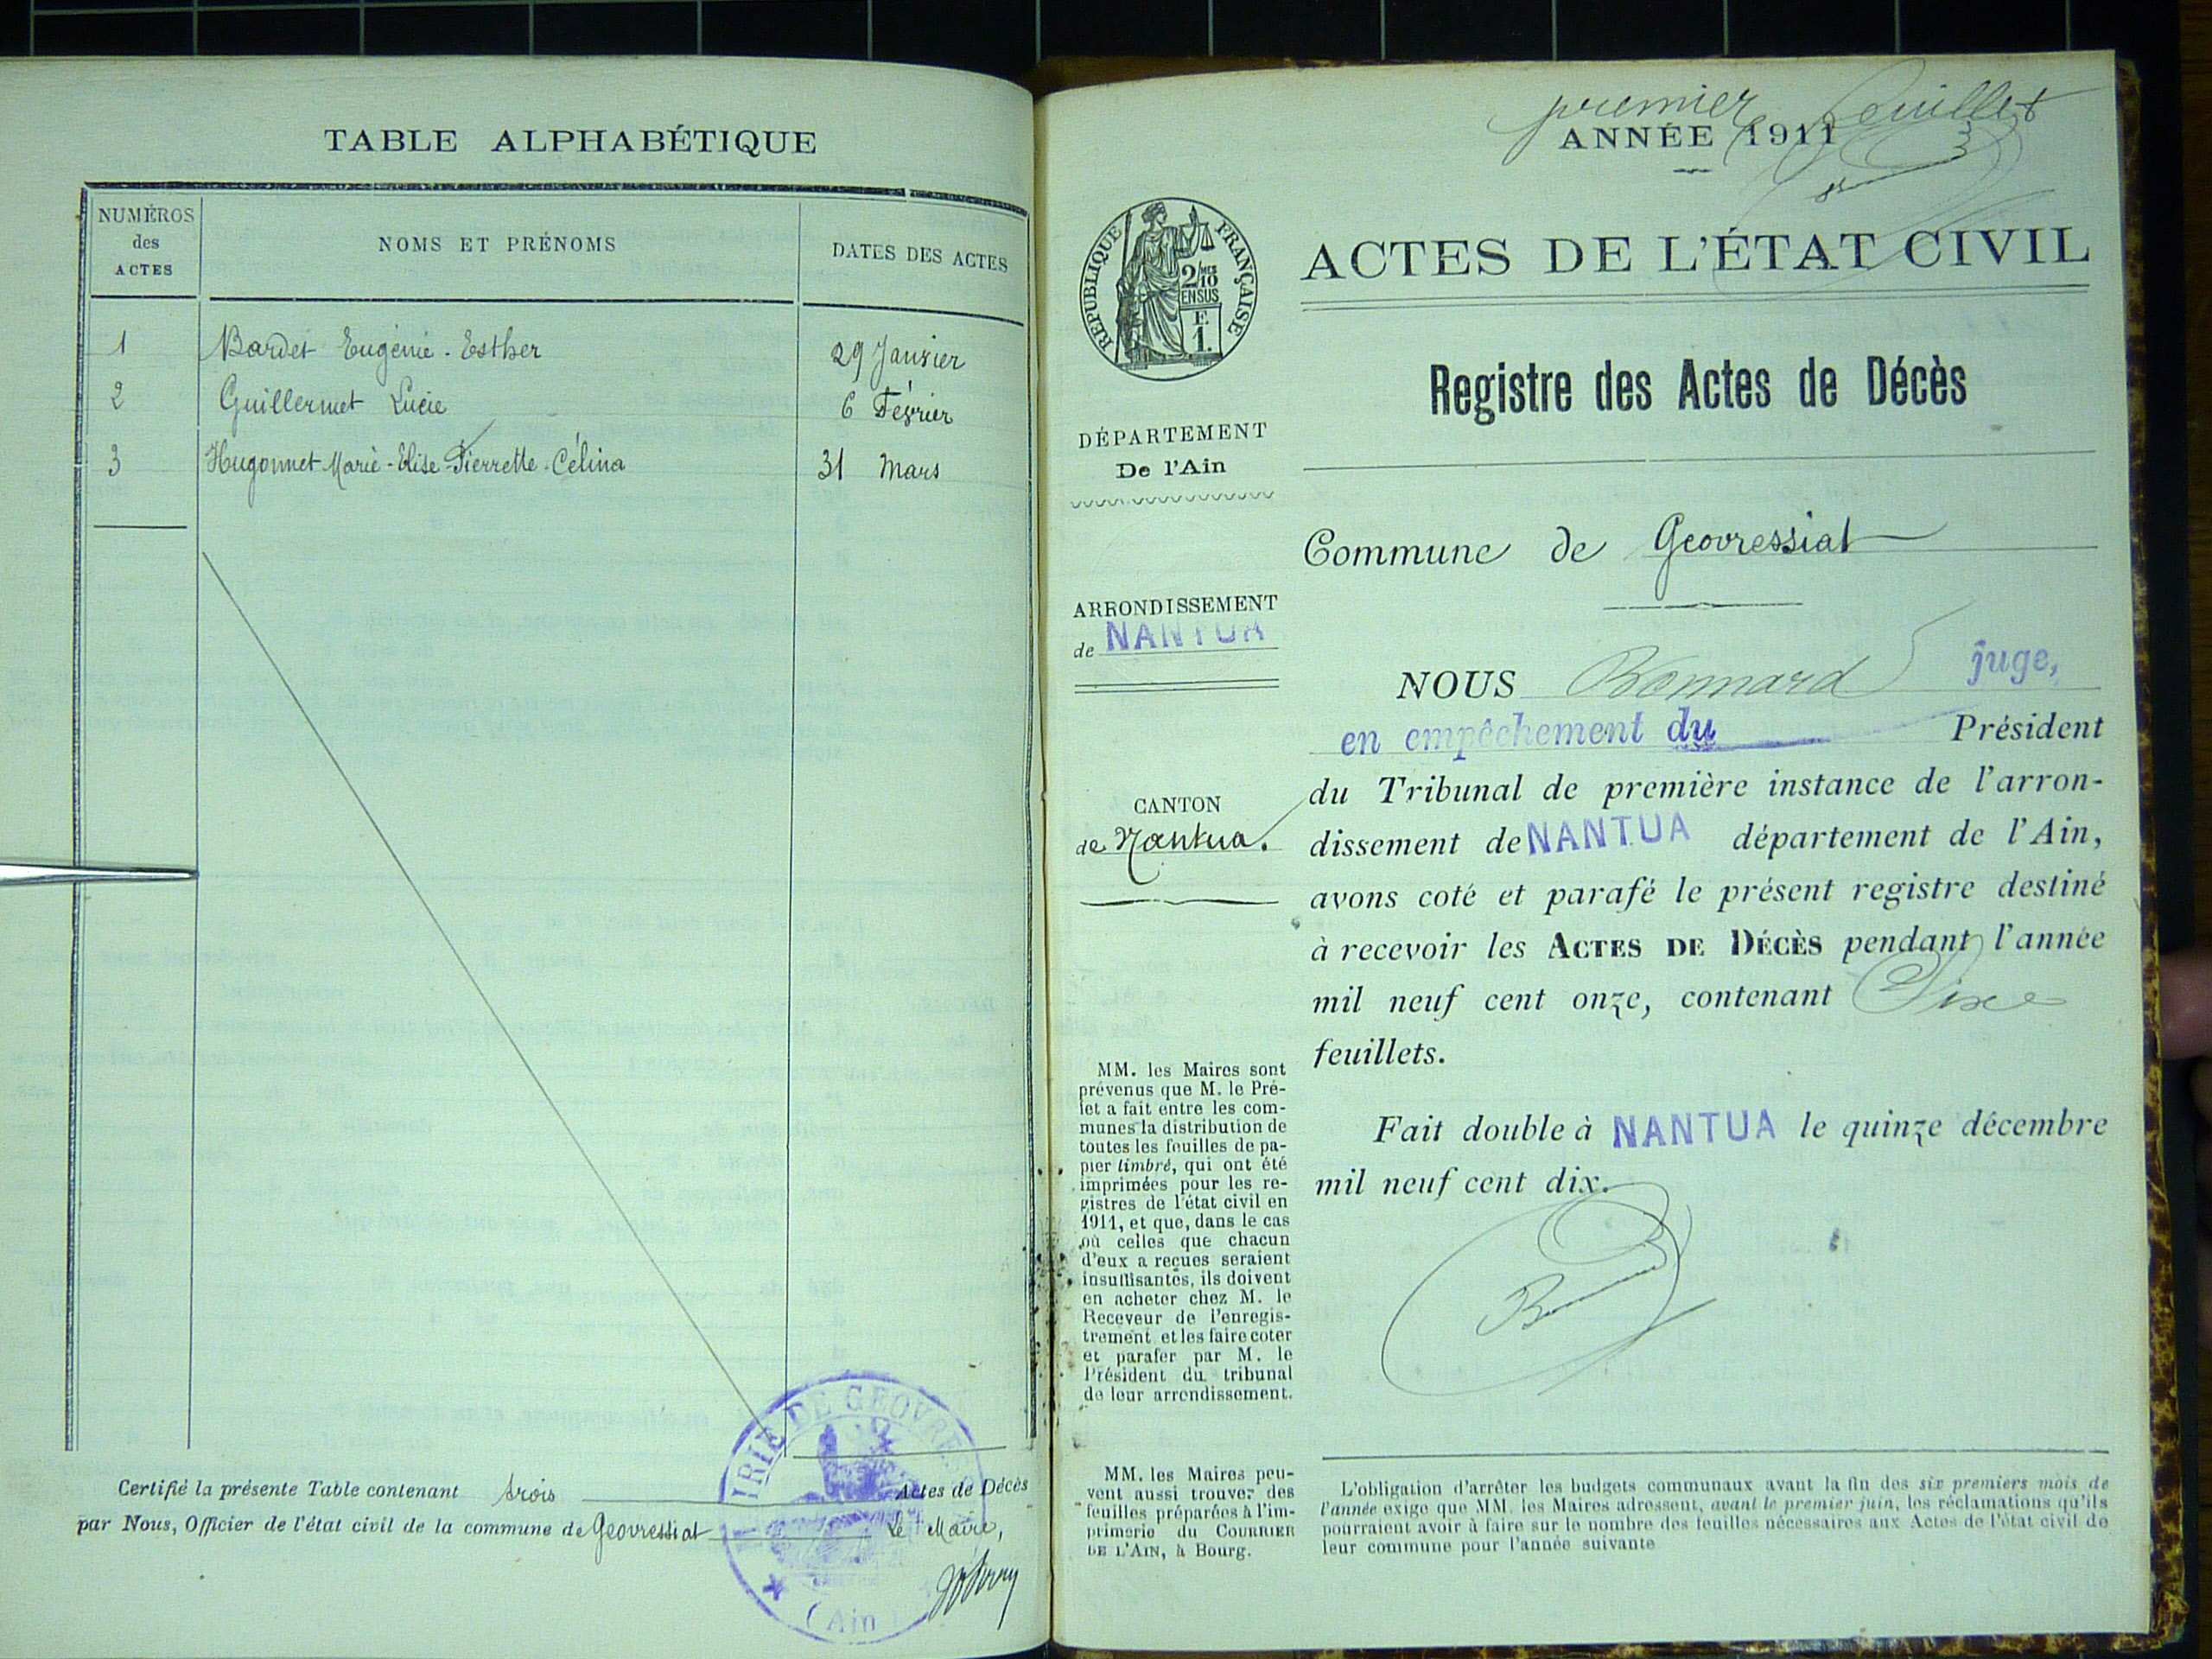 TABLE ALPHABÉTIQUE
NUMÉROS
des
ACTES
NOMS ET PRÉNOMS
DATES DES ACTES
1 Bardet Eugénie - Esther 29 Janvier
2 Guillermet Lucie 6 Février
3 Hugonnet Marie - Elise - Pierrette - Célina 31 Mars
Certifié la présente Table contenant trois Actes de Décès
par Nous, Officier de l'état civil de la commune de Geovressiat Le Maire,
IRIE DE GEOVRES
(Ain)
premier feuillet
ANNÉE 1911
RÉPUBLIQUE FRANÇAISE
2/10 MES
EN SUS
F.
1.
ACTES DE L'ÉTAT CIVIL
Registre des Actes de Décès
DÉPARTEMENT
De l'Ain
Commune de Geovressiat
ARRONDISSEMENT
de NANTUA
CANTON
de Nantua.
NOUS Bonnard juge,
en empêchement du Président
du Tribunal de première instance de l'arron-
dissement de NANTUA département de l'Ain,
avons coté et parafé le présent registre destiné
à recevoir les ACTES DE DÉCÈS pendant l'année
mil neuf cent onze, contenant
feuillets.
Fait double à NANTUA le quinze décembre
mil neuf cent dix.
MM. les Maires sont
prévenus que M. le Pré-
fet a fait entre les com-
munes la distribution de
toutes les feuilles de pa-
pier timbré, qui ont été
imprimées pour les re-
gistres de l'état civil en
1911, et que, dans le cas
où celles que chacun
d'eux a reçues seraient
insuffisantes, ils doivent
en acheter chez M. le
Receveur de l'enregis-
trement et les faire coter
et parafer par M. le
Président du tribunal
de leur arrondissement.
MM. les Maires peu-
vent aussi trouver des
feuilles préparées à l'im-
primerie du COURRIER
DE L'AIN, à Bourg.
L'obligation d'arrêter les budgets communaux avant la fin des six premiers mois de
l'année exige que MM. les Maires adressent, avant le premier juin, les réclamations qu'ils
pourraient avoir à faire sur le nombre des feuilles nécessaires aux Actes de l'état civil de
leur commune pour l'année suivante